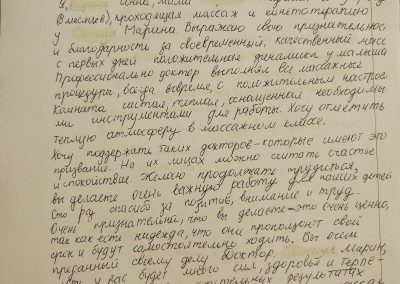 Инна, мама
проходящая массаж и кинетотерапию
у Марина. Выражаю свою признательнос
и благодарность за своевременный, качественный масс
с первых дней положительная динамика у малыша
Профессионально доктор выполнял все массажные
процедуры, всегда вовремя, с положительным настрое
Комната чистая, теплая, оснащенная необходимы
ми инструментами для работы. Хочу отметить
теплую атмосферу в массажном классе.
Хочу поддержать таких докторов-которые имеют это
призвание. На их лицах можно считать счастье
и спокойствие. Желаю продолжать трудиться,
вы делаете очень важную работу для наших детей
Сто раз спасибо за позитив, внимание и труд.
Очень признателни, что вы делаете-это очень ценно,
так как есть надежда, что они проползут свой
срок и будут самостоятельно ходить. Вы особ
преданный своему делу Доктор. Марин,
у вас будет много сил, здоровья и терпе-
результатах